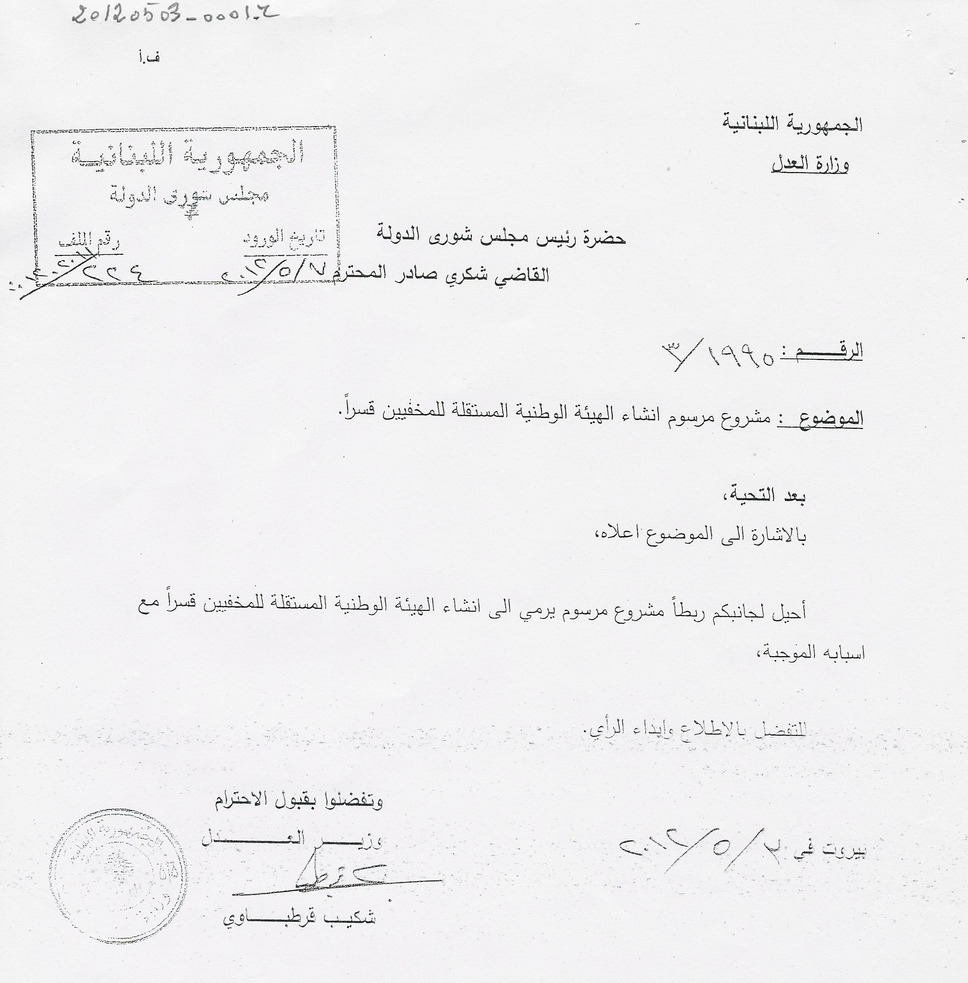 20120503-00012
ف.أ
الجمهورية اللبنانية
وزارة العدل
الجمهورية اللبنانية
مجلس شورى الدولة
تاريخ الورود
رقم الملف
٢٠١٢/٥/٧
٢٢٤
حضرة رئيس مجلس شورى الدولة
القاضي شكري صادر المحترم
الرقـــــم : ١٩٩٥/٣
الموضوع : مشروع مرسوم انشاء الهيئة الوطنية المستقلة للمخفيين قسراً.
بعد التحية،
بالاشارة الى الموضوع اعلاه،
أحيل لجانبكم ربطاً مشروع مرسوم يرمي الى انشاء الهيئة الوطنية المستقلة للمخفيين قسراً مع
اسبابه الموجبة،
للتفضل بالاطلاع وابداء الرأي.
وتفضلوا بقبول الاحترام
وزيـــر العـــــدل
شكيـب قرطبـــاوي
بيروت في ٣/٥/٢٠١٢
الجمهورية اللبنانية